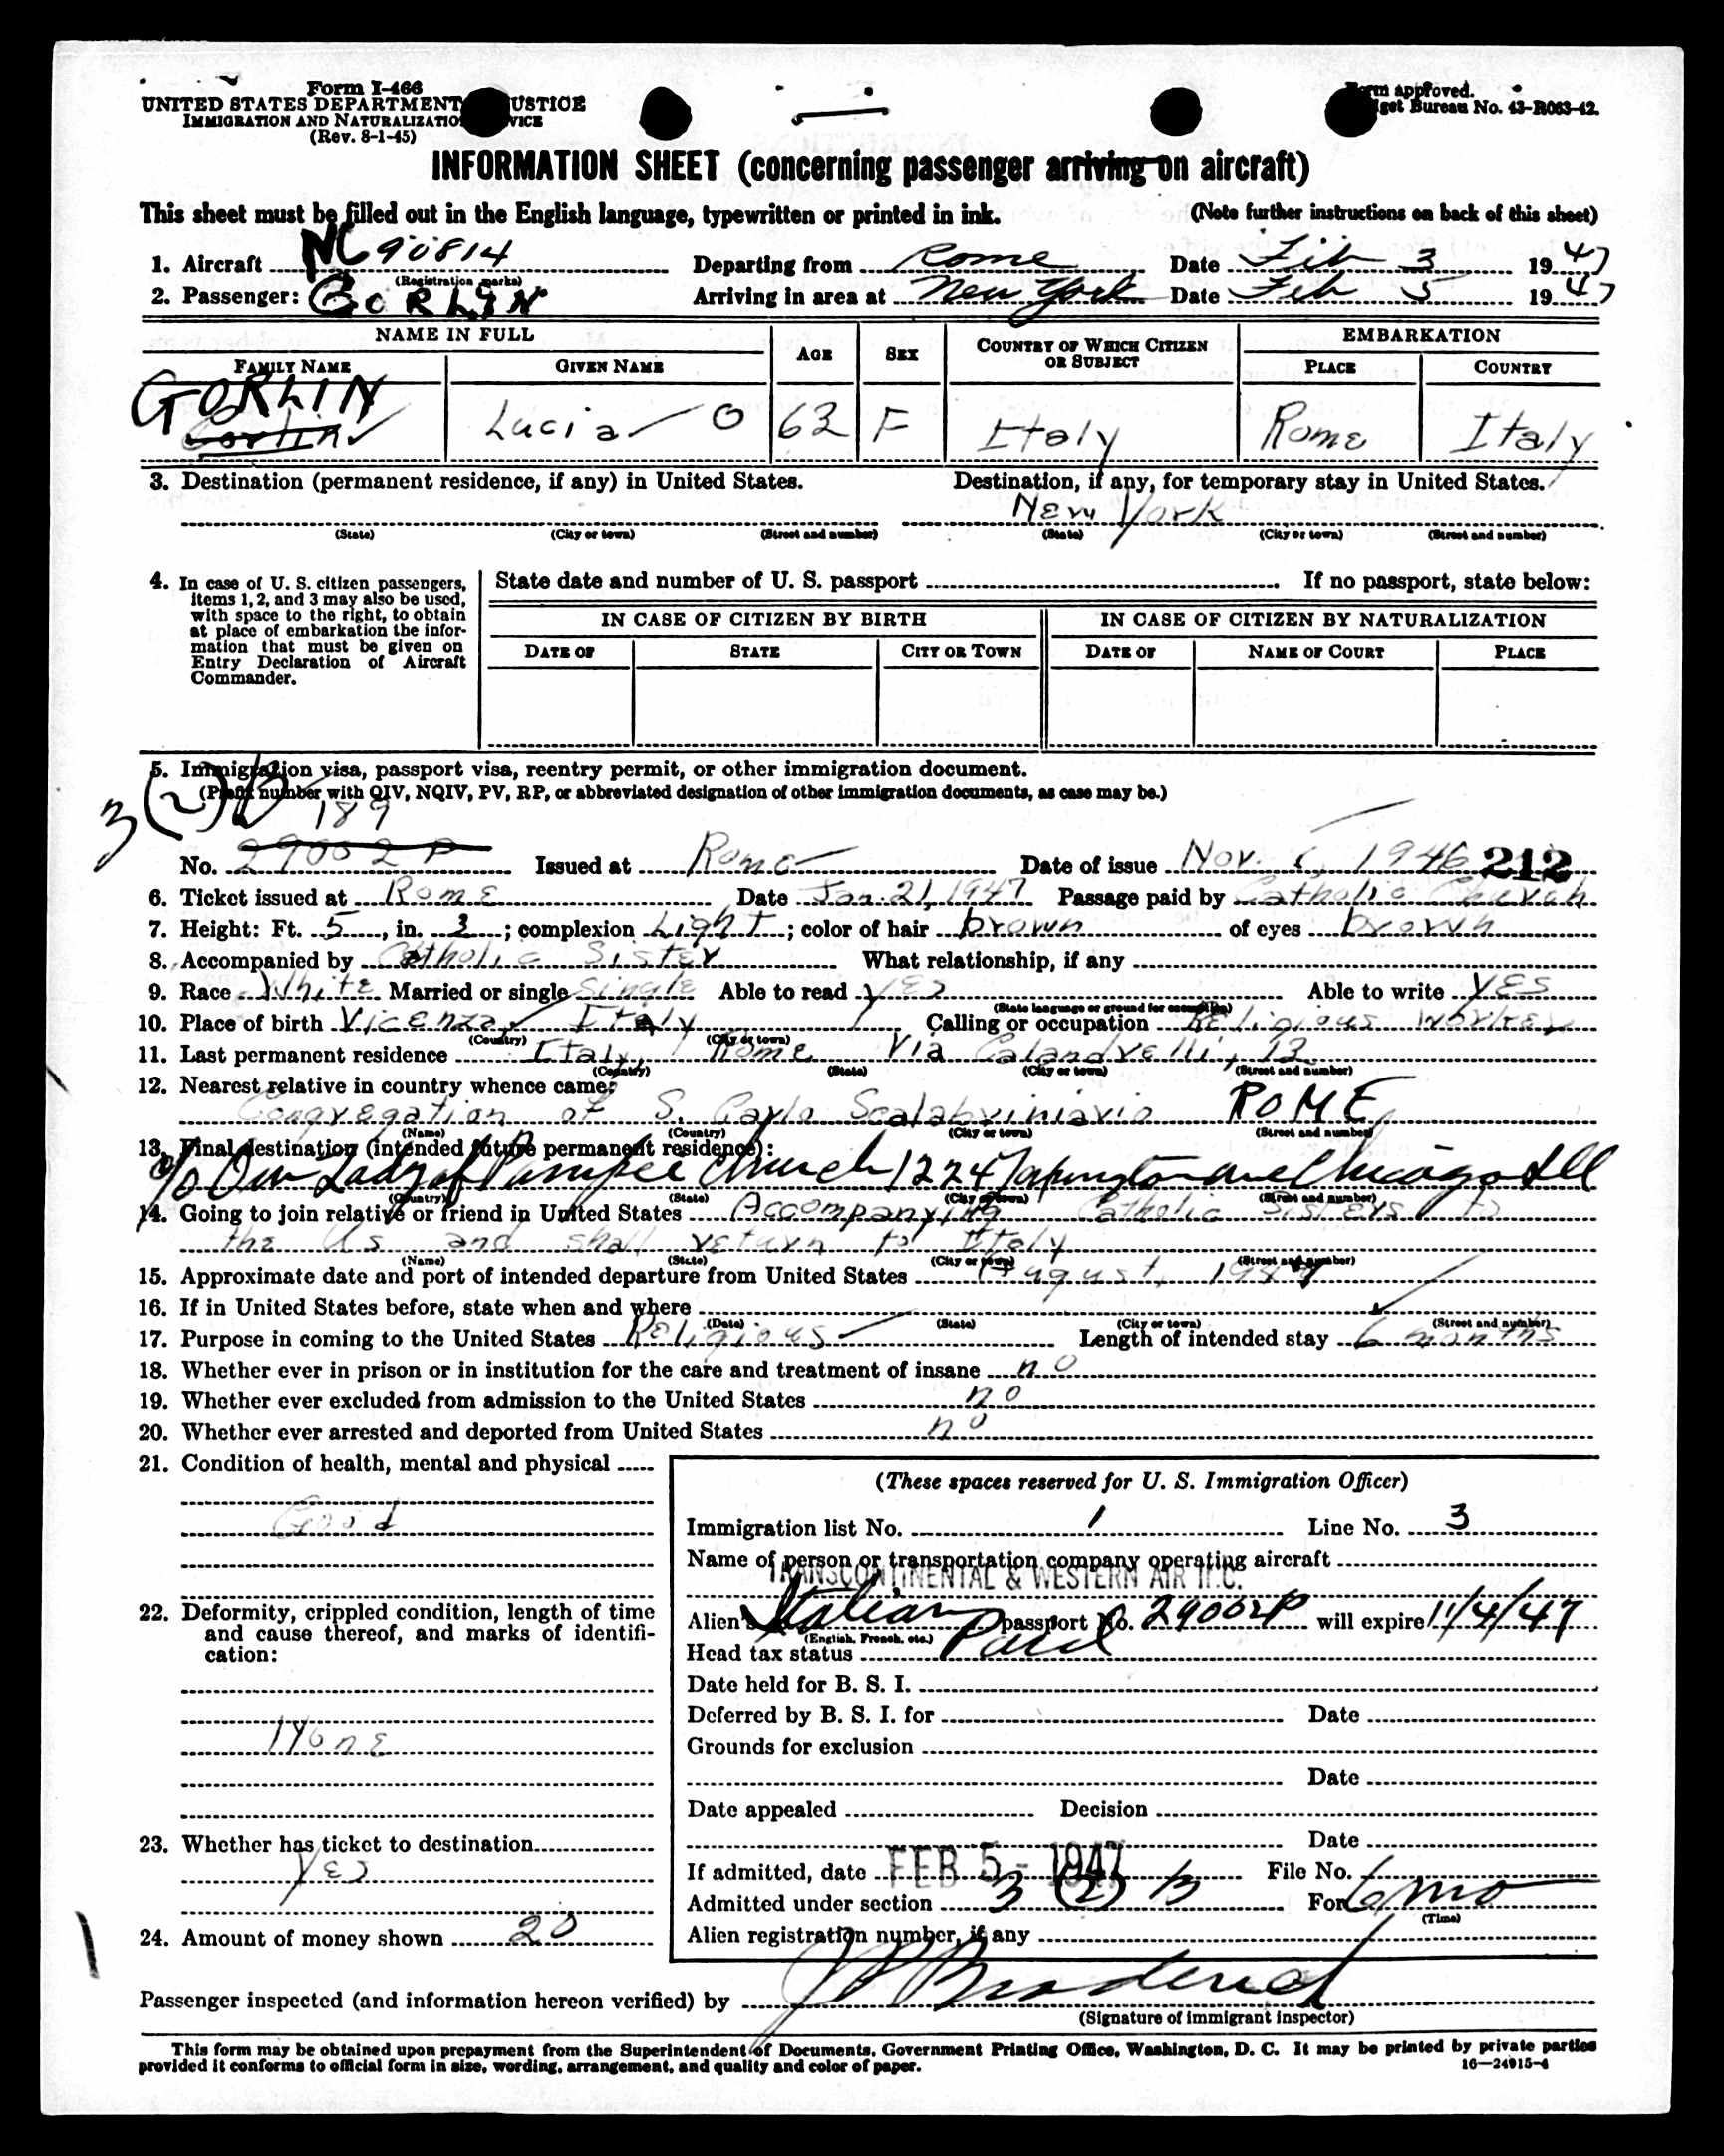 Form I-466
UNITED STATES DEPARTMENT USTICE
IMMIGRATION AND NATURALIZATIO VICE
(Rev. 8-1-45)
rm approved.
get Bureau No. 43-R063-42.
INFORMATION SHEET (concerning passenger arriving on aircraft)
This sheet must be filled out in the English language, typewritten or printed in ink. (Note further instructions on back of this sheet)
1. Aircraft NC 90814 Departing from Rome Date Feb 3 1947
(Registration marks)
2. Passenger: GORLIN Arriving in area at New York Date Feb 5 1947
NAME IN FULL AGE SEX COUNTRY OF WHICH CITIZEN OR SUBJECT EMBARKATION
FAMILY NAME GIVEN NAME PLACE COUNTRY
GORLIN
Gorlin Lucia O 62 F Italy Rome Italy
3. Destination (permanent residence, if any) in United States. Destination, if any, for temporary stay in United States.
New York
(State) (City or town) (Street and number) (State) (City or town) (Street and number)
4. In case of U. S. citizen passengers, items 1, 2, and 3 may also be used, with space to the right, to obtain at place of embarkation the information that must be given on Entry Declaration of Aircraft Commander.
State date and number of U. S. passport If no passport, state below:
IN CASE OF CITIZEN BY BIRTH IN CASE OF CITIZEN BY NATURALIZATION
DATE OF STATE CITY OR TOWN DATE OF NAME OF COURT PLACE
5. Immigration visa, passport visa, reentry permit, or other immigration document.
(Prefix number with QIV, NQIV, PV, RP, or abbreviated designation of other immigration documents, as case may be.)
3 (2) B
189
No. 29002 P Issued at Rome Date of issue Nov. 1946 212
6. Ticket issued at Rome Date Jan. 21, 1947 Passage paid by Catholic Church
7. Height: Ft. 5, in. 3; complexion Light; color of hair brown of eyes brown
8. Accompanied by Catholic Sister What relationship, if any
9. Race White Married or single Single Able to read yes Able to write yes
(State language or ground for exemption)
10. Place of birth Vicenza, Italy Calling or occupation Religious Worker
(Country) (City or town)
11. Last permanent residence Italy, Rome Via Calandrelli, 12
(Country) (State) (City or town) (Street and number)
12. Nearest relative in country whence came:
Congregation of S. Carlo ROME
(Name) (Country) (City or town) (Street and number)
13. Final destination (intended future permanent residence):
c/o Our Lady of Pompee Church 1224 ave Chicago Ill
(Country) (State) (City or town) (Street and number)
14. Going to join relative or friend in United States Accompanying Catholic Sisters to
the Us and shall return to Italy
(Name) (State) (City or town) (Street and number)
15. Approximate date and port of intended departure from United States August, 1947
16. If in United States before, state when and where
(Date) (State) (City or town) (Street and number)
17. Purpose in coming to the United States Religious Length of intended stay 6 months
18. Whether ever in prison or in institution for the care and treatment of insane no
19. Whether ever excluded from admission to the United States no
20. Whether ever arrested and deported from United States no
21. Condition of health, mental and physical
Good
22. Deformity, crippled condition, length of time and cause thereof, and marks of identification:
None
23. Whether has ticket to destination
Yes
24. Amount of money shown 20
(These spaces reserved for U. S. Immigration Officer)
Immigration list No. 1 Line No. 3
Name of person or transportation company operating aircraft
TRANSCONTINENTAL & WESTERN AIR INC.
Alien's Italian passport No. 29002P will expire 11/4/47
(English, French, etc.)
Head tax status Paid
Date held for B. S. I.
Deferred by B. S. I. for Date
Grounds for exclusion
Date
Date appealed Decision
Date
If admitted, date FEB 5 - 1947 File No.
Admitted under section 3 (2) B For 6 mo
(Time)
Alien registration number, if any
Passenger inspected (and information hereon verified) by
(Signature of immigrant inspector)
This form may be obtained upon prepayment from the Superintendent of Documents, Government Printing Office, Washington, D. C. It may be printed by private parties
provided it conforms to official form in size, wording, arrangement, and quality and color of paper. 16—24915-4